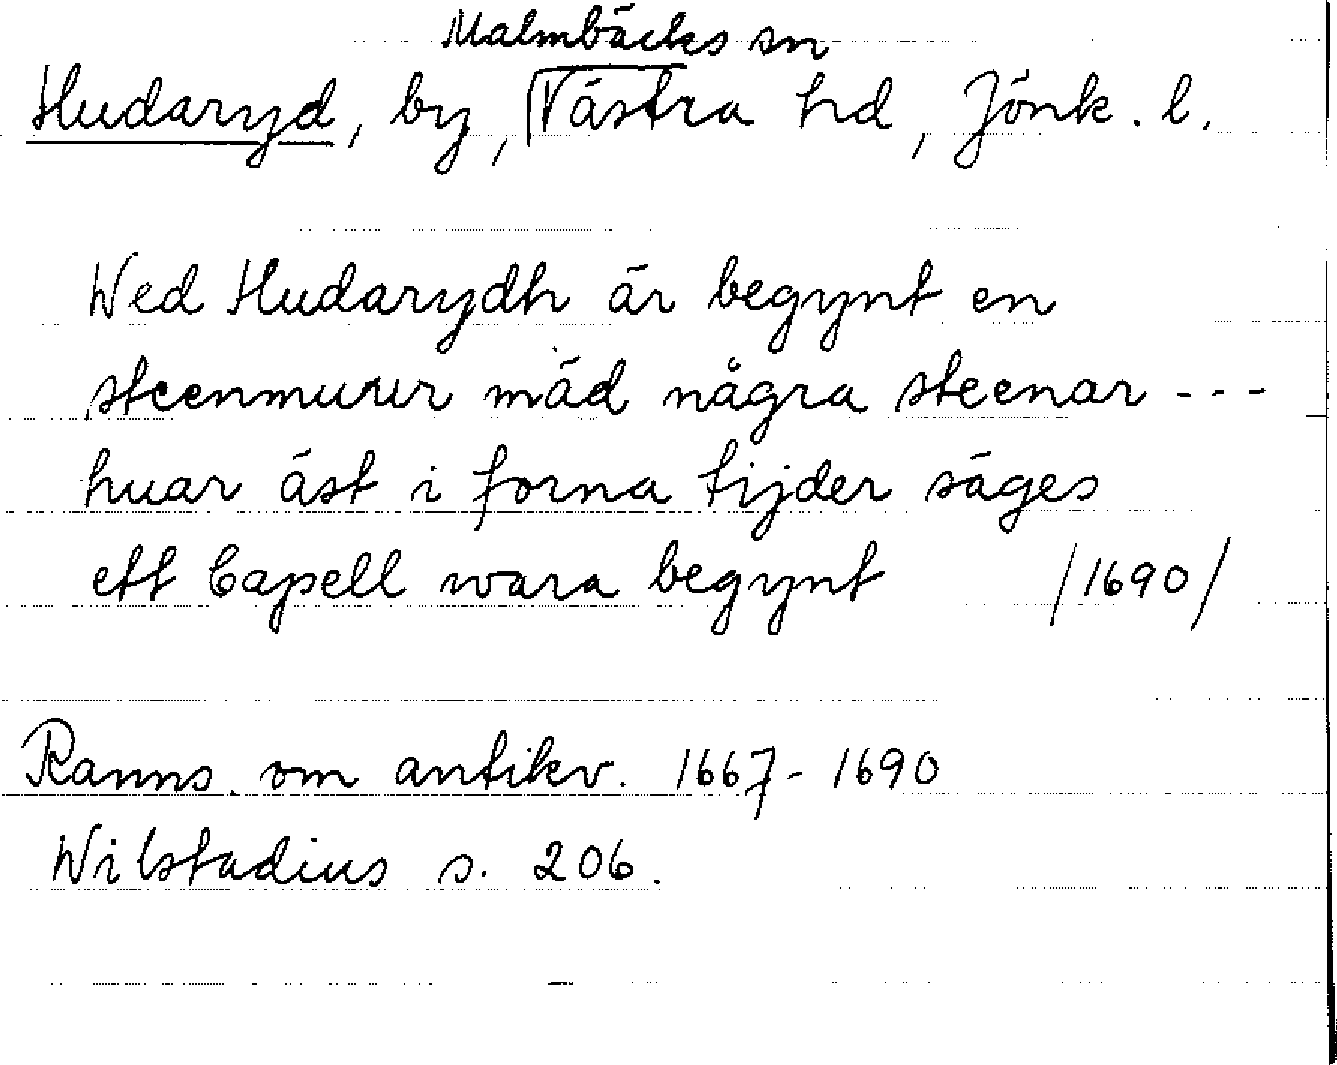 Malmbäcks sn
Hudaryd, by, Västra hd, Jönk. l.
Wed Hudarydh är begynt en
steenmurur mäd några steenar ---
huar äst i forna tijder säges
ett Capell wara begynt /1690/
Ranns. om antikv. 1667-1690
Wilstadius s. 206.